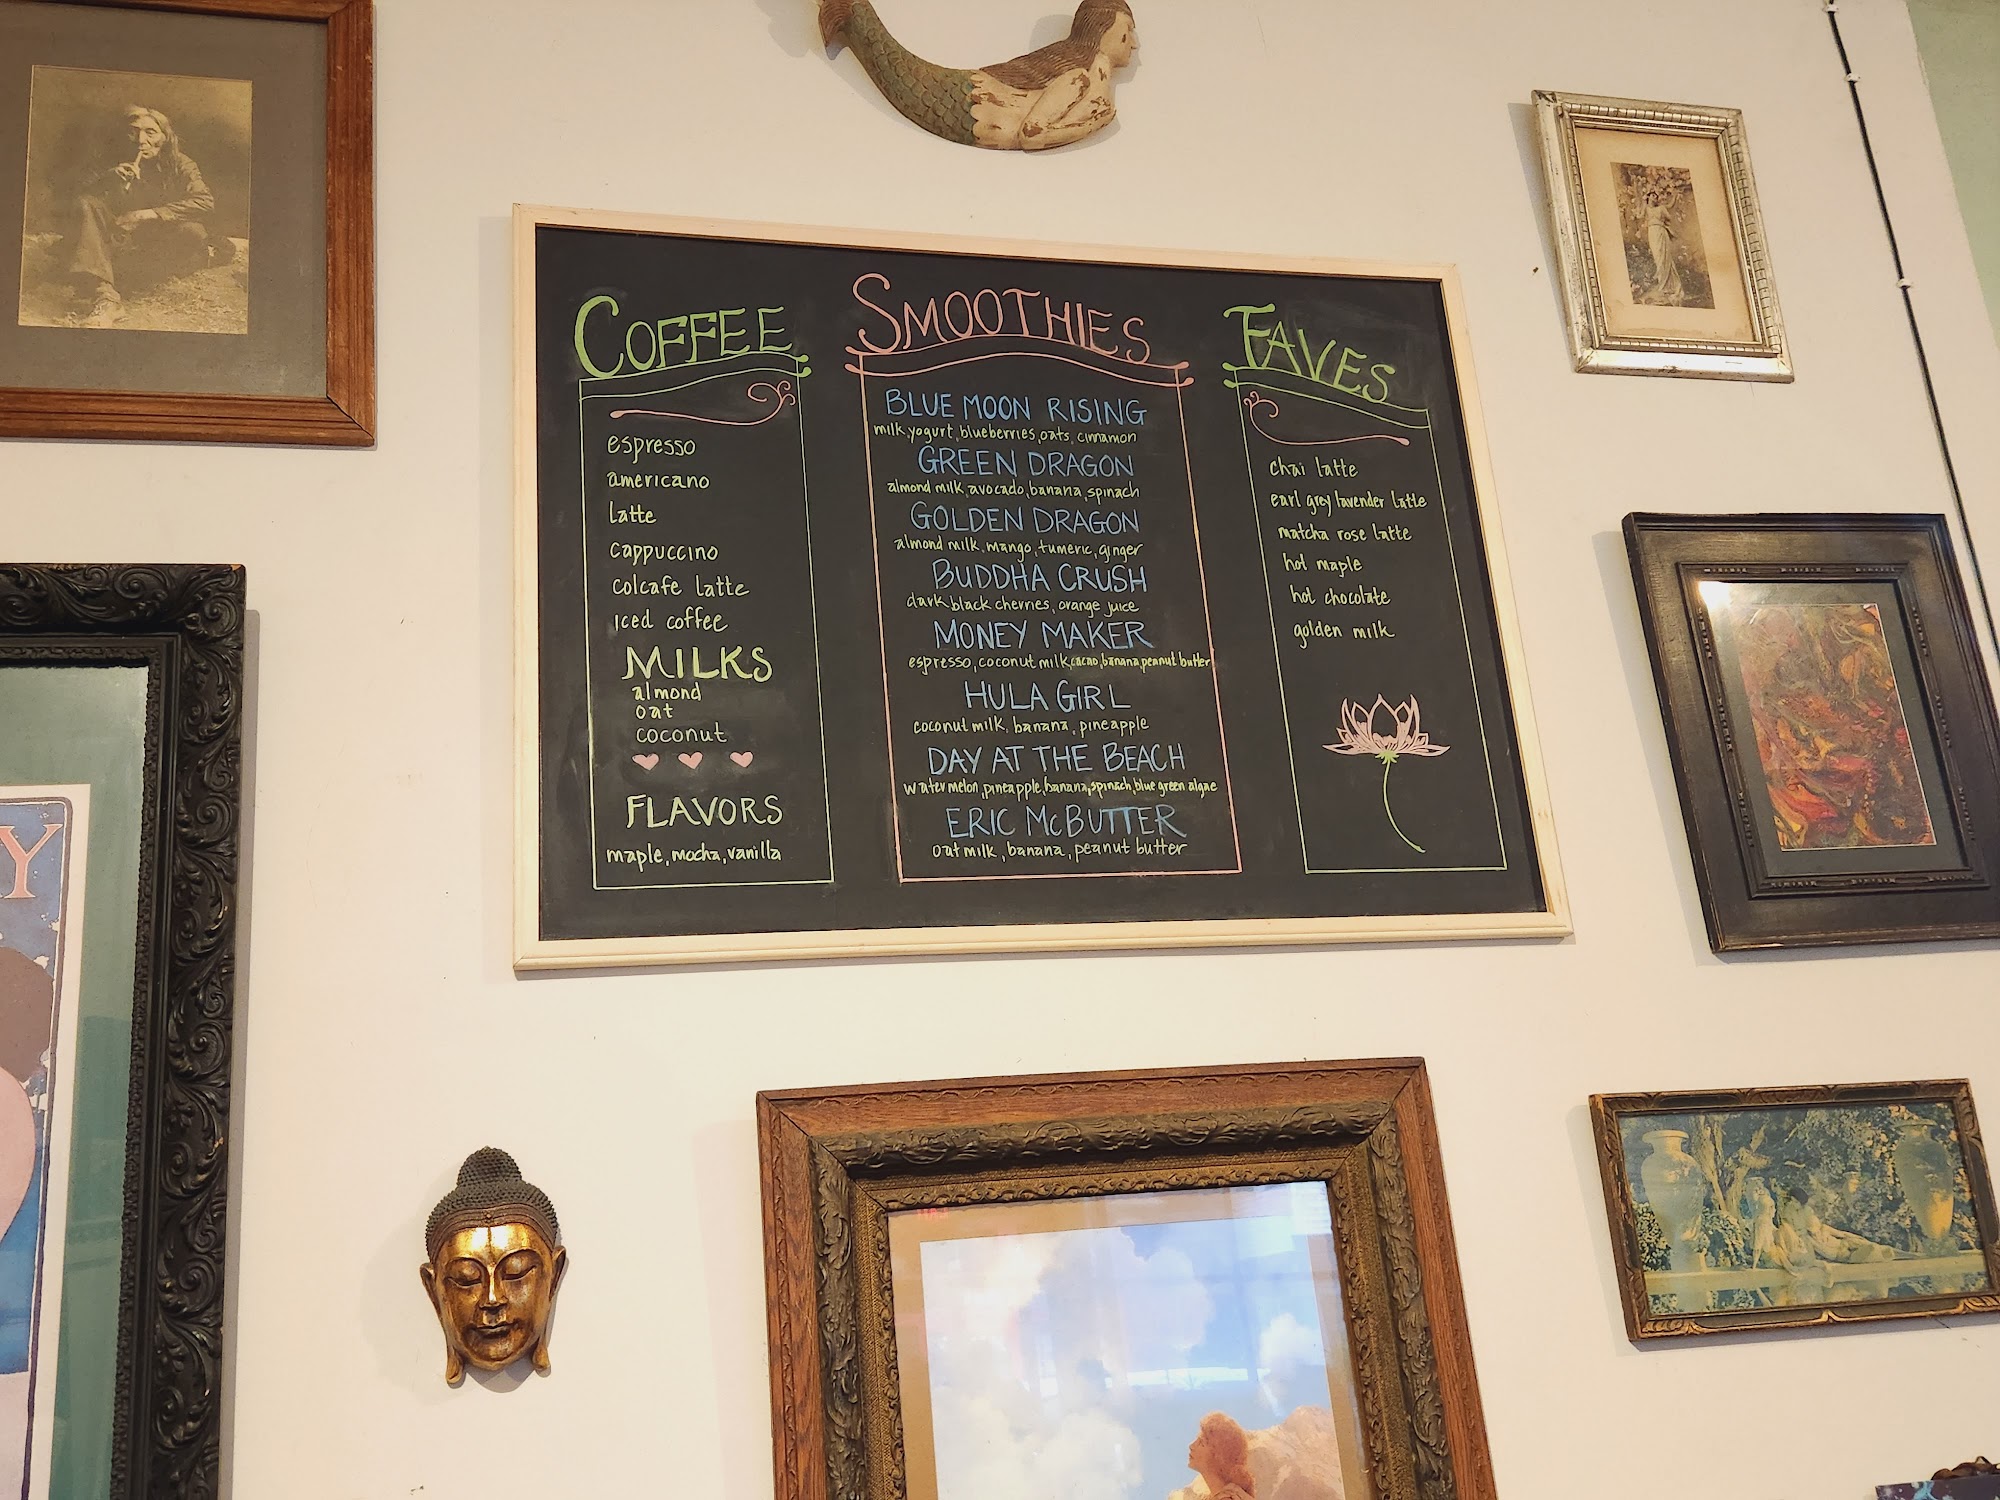 COFFEE
espresso
americano
latte
cappuccino
colcafe latte
iced coffee
MILKS
almond
oat
coconut
FLAVORS
maple, mocha, vanilla
SMOOTHIES
BLUE MOON RISING
milk, yogurt, blueberries, oats, cinnamon
GREEN DRAGON
almond milk, avocado, banana, spinach
GOLDEN DRAGON
almond milk, mango, tumeric, ginger
BUDDHA CRUSH
dark black cherries, orange juice
MONEY MAKER
espresso, coconut milk, cacao, banana, peanut butter
HULA GIRL
coconut milk, banana, pineapple
DAY AT THE BEACH
watermelon, pineapple, banana, spinach, blue green algae
ERIC McBUTTER
oat milk, banana, peanut butter
FAVES
chai latte
earl grey lavender latte
matcha rose latte
hot maple
hot chocolate
golden milk
Y